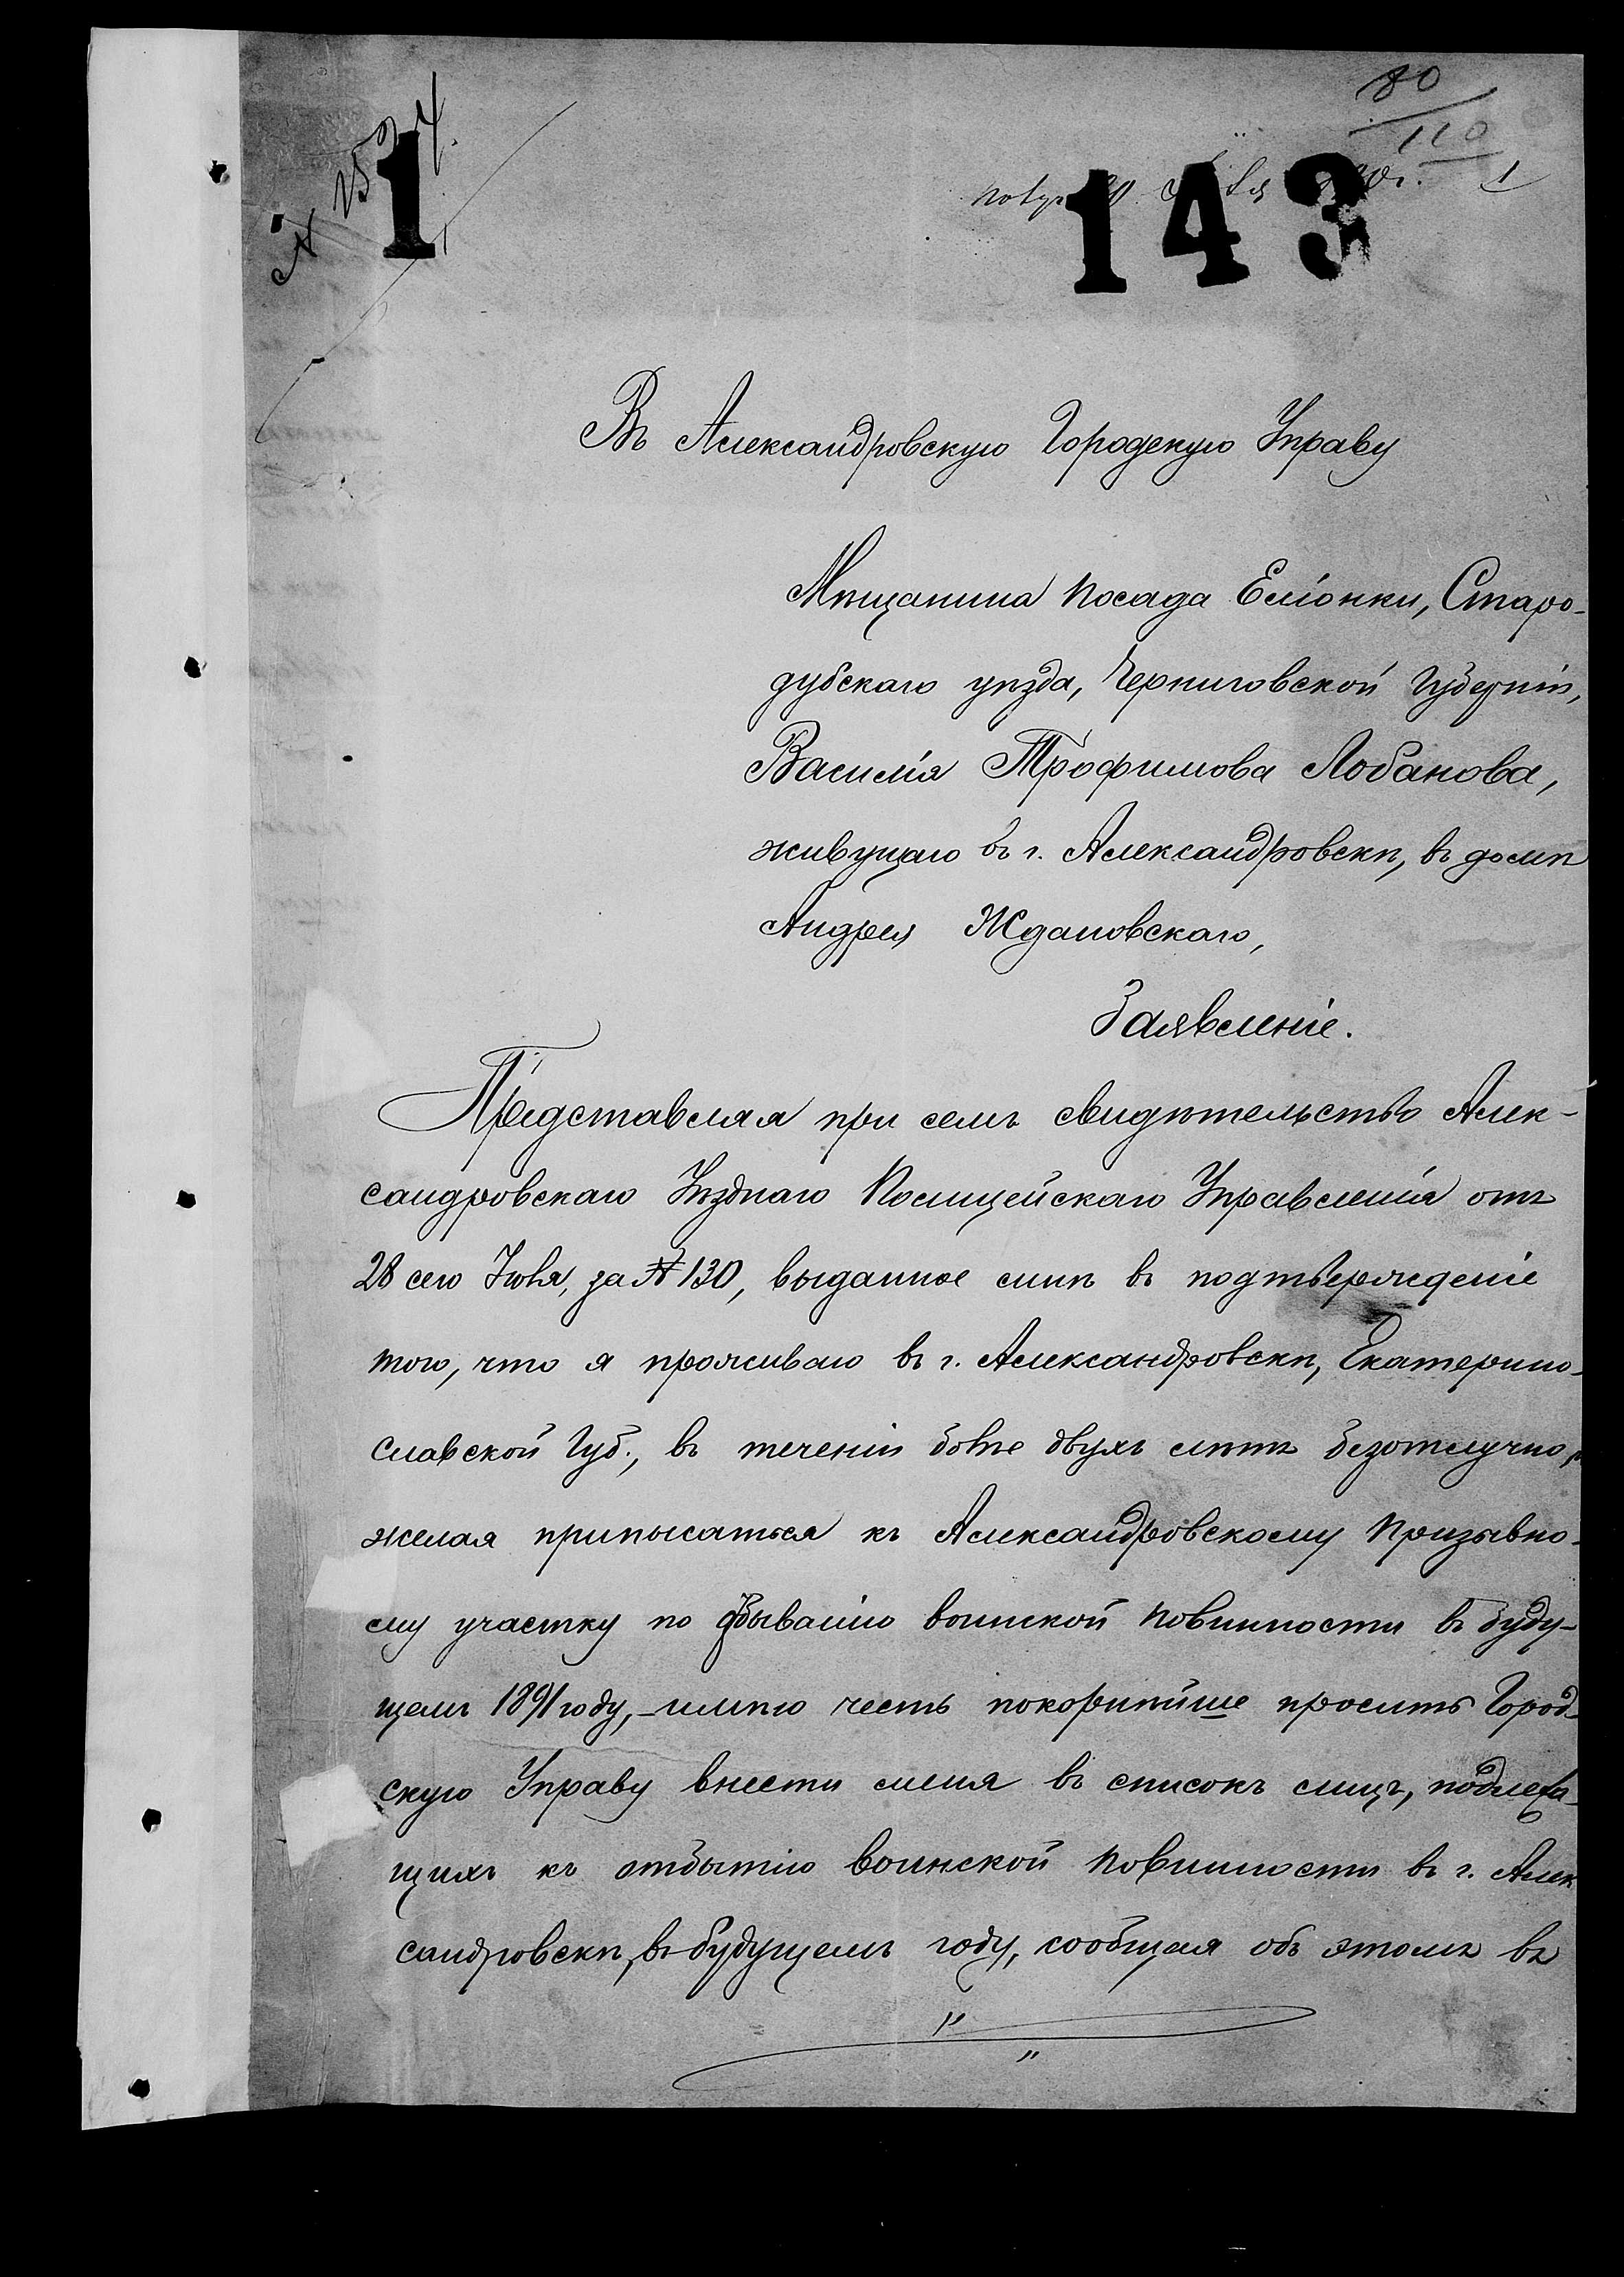 80
110
1
№ 2524.
1
143
Въ Александровскую Городскую Управу
Мѣщанина посада Еліонки, Старо-
дубскаго уѣзда, Черниговской Губерніи,
Василія Трофимова Лобанова,
живущаго въ г. Александровскѣ, въ домѣ
Андрея Ждановскаго,
Заявленіе.
Представляя при семъ свидѣтельство Алек-
сандровскаго Уѣзднаго Полицейскаго Управленія отъ
28 сего Іюля, за № 130, выданное мнѣ въ подтвержденіе
того, что я проживаю въ г. Александровскѣ, Екатерино-
славской Губ., въ теченіи болѣе двухъ лѣтъ безотлучно,
желая приписаться къ Александровскому призывно-
му участку по отбыванію воинской повинности въ буду-
щемъ 1891 году, - имѣю честь покорнѣйше просить Город-
скую Управу внести меня въ списокъ лицъ, подлежа-
щихъ къ отбытію воинской повинности въ г. Алек
сандровскѣ, въ будущемъ году, сообщая объ этомъ въ